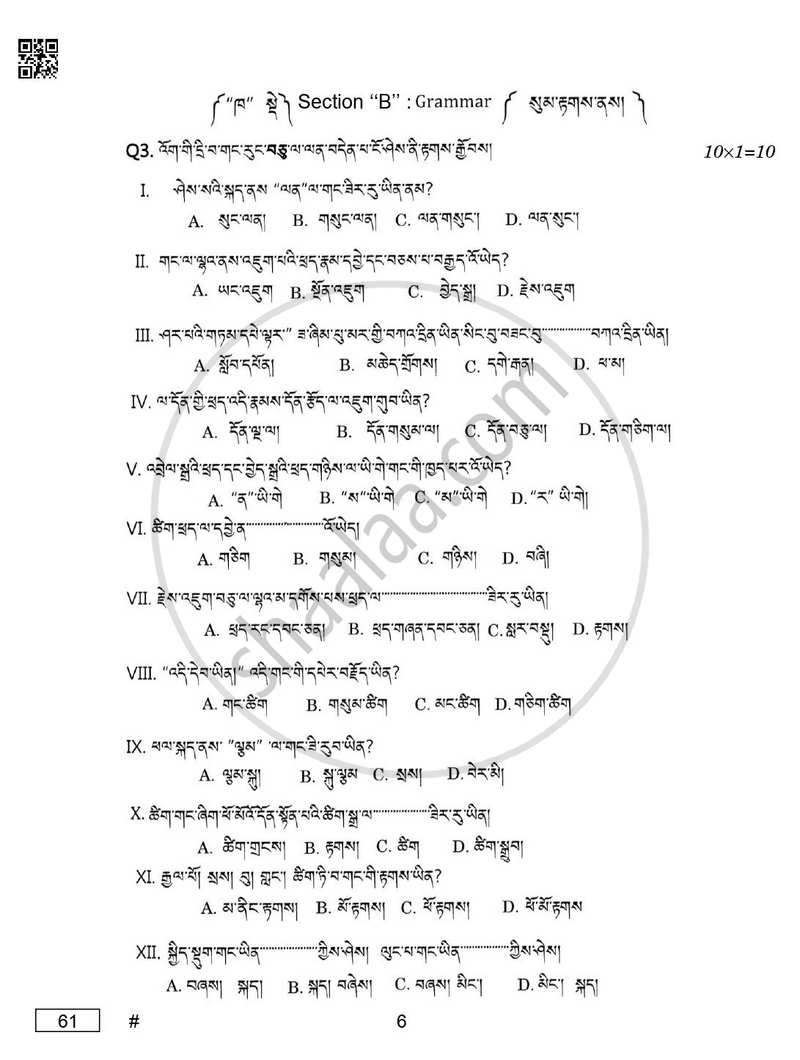 ༼ “ཁ” སྡེ༽ Section ‘‘B’’ : Grammar ༼ སུམ་རྟགས་ནས། ༽
Q3. འོག་གི་དྲི་བ་གང་རུང་བཅུ་ལ་ལན་བདེན་པ་ངོ་ཤེས་ནི་རྟགས་རྒྱོབས། 10×1=10
I. ཤེས་སའི་སྐད་ནས “ལན”ལ་གང་ཟིར་རུ་ཡིན་ནམ?
A. སུང་ལན། B. གསུང་ལན། C. ལན་གསུང་། D. ལན་སུང་།
II. གང་ལ་ལྷྭའ་ནས་འཇུག་པའི་ཕྲད་རྣམ་དབྱེ་དང་བཅས་པ་བརྒྱད་འོ་ཡེད?
A. ཡང་འཇུག B. སྔོན་འཇུག C. བྱེད་སྒྲ། D. རྗེས་འཇུག
III. ཤར་པའི་གཏམ་དཔེ་ལྟར་” ཟ་ཞིམ་ཕུ་མར་གྱི་བཀའ་དྲིན་ཡིན་སིང་བུ་བཟང་བུ┈┈┈┈བཀའ་དྲིན་ཡིན།
A. སློབ་དཔོན། B. མཆེད་གྲོགས། C. དགེ་རྒན། D. ཕ་མ།
IV. ལ་དོན་གྱི་ཕྲད་འདི་རྣམས་དོན་རྩོད་ལ་འཇུག་གུབ་ཡིན?
A. དོན་ལྔ་ལ། B. དོན་གསུམ་ལ། C. དོན་བཅུ་ལ། D. དོན་གཅིག་ལ།
V. འབྲེལ་སྒྲའི་ཕྲད་དང་བྱེད་སྒྲའི་ཕྲད་གཉིས་ལ་ཡི་གེ་གང་གི་ཁྱད་པར་འོ་ཡེད?
A. “ན”ཡི་གེ B. “ས”ཡི་གེ C. “མ”ཡི་གེ D. “ར” ཡི་གེ།
VI. ཚིག་ཕྲད་ལ་དབྱེ་ན┈┈┈┈┈┈འོ་ཡེད།
A. གཅིག B. གསུམ། C. གཉིས། D. བཞི།
VII. རྗེས་འཇུག་བཅུ་ལ་ལྷྭའ་མ་དགོས་པས་ཕྲད་ལ┈┈┈┈┈┈┈┈ཟིར་རུ་ཡིན།
A. ཕྲད་རང་དབང་ཅན། B. ཕྲད་གཞན་དབང་ཅན། C. སླར་བསྡུ། D. རྟགས།
VIII. “འདི་དེབ་ཡིན།” འདི་གང་གི་དཔེར་བརྗོད་ཡིན?
A. གང་ཚིག B. གསུམ་ཚིག C. མང་ཚིག D. གཅིག་ཚིག
IX. ཕལ་སྐད་ནས་ “ལྷམ” ་ལ་གང་ཟི་རུབ་ཡིན?
A. ལྷམ་སྐུ། B. སྐུ་ལྷམ C. སྲས། D. བེར་མི།
X. ཚིག་གང་ཞིག་ཕོ་མོའི་དོན་སྟོན་པའི་ཚིག་སྒྲ་ལ┈┈┈┈┈ཟིར་རུ་ཡིན།
A. ཚིག་གྲངས། B. རྟགས། C. ཚིག D. ཚིག་སྒྲུབ།
XI. རྒྱལ་པོ། སྲས། བུ། གླང་། ཚིག་ཏི་བ་གང་གི་རྟགས་ཡིན?
A. མ་ནིང་རྟགས། B. མོ་རྟགས། C. ཕོ་རྟགས། D. ཕོ་མོ་རྟགས
XII. སྐྱིད་སྡུག་གང་ཡིན┈┈┈┈┈ཀྱིས་ཤེས། ལུང་པ་གང་ཡིན┈┈┈┈ཀྱིས་ཤེས།
A. བཞས། སྐད། B. སྐད། བཞེས། C. བཞས། མིང་། D. མིང་། སྐད།
shaalaa.com
61 # 6